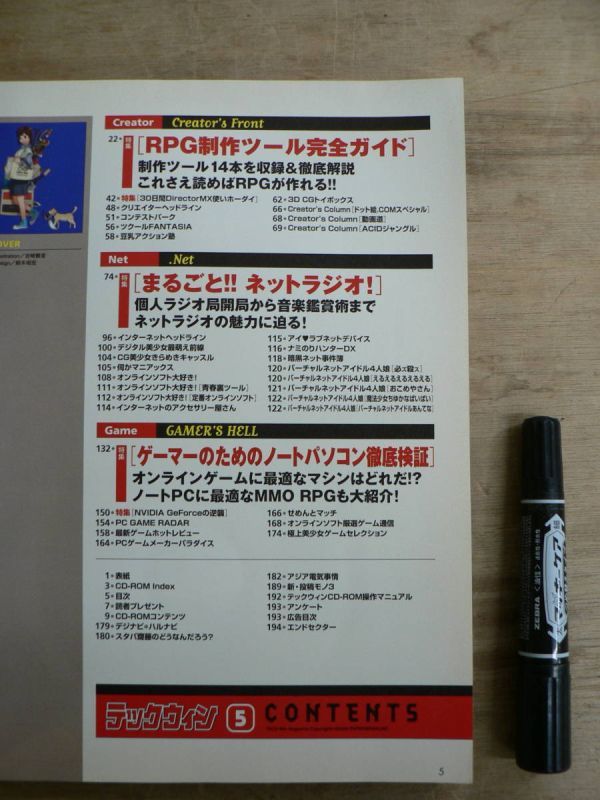 Creator Creator's Front
22● 特集 [RPG制作ツール完全ガイド]
制作ツール14本を収録&徹底解説
これさえ読めばRPGが作れる!!
42● 特集 [30日間DirectorMX使いホーダイ]
48●クリエイターヘッドライン
51●コンテストパーク
56●ツクールFANTASIA
58●豆乳アクション塾
62●3D CGトイボックス
66●Creator's Column [ドット絵.COMスペシャル]
68●Creator's Column [動画道]
69●Creator's Column [ACIDジャングル]
OVER
Net .Net
74● 特集 [まるごと!! ネットラジオ!]
個人ラジオ局開局から音楽鑑賞術まで
ネットラジオの魅力に迫る!
96●インターネットヘッドライン
100●デジタル美少女最萌え前線
104●CG美少女きらめきキャッスル
105●何かマニアックス
108●オンラインソフト大好き!
111●オンラインソフト大好き! [青春裏ツール]
112●オンラインソフト大好き! [定番オンラインソフト]
114●インターネットのアクセサリー屋さん
115●アイ♥ラブネットデバイス
116●ナミのりハンターDX
118●暗黒ネット事件簿
120●バーチャルネットアイドル4人娘 [必ズ殺ス]
120●バーチャルネットアイドル4人娘 [えるえるえるえるえる]
121●バーチャルネットアイドル4人娘 [おこめやさん]
122●バーチャルネットアイドル4人娘 [魔法少女ちゆかなばいばい]
122●バーチャルネットアイドル4人娘 [バーチャルネットアイドルあんてな]
Game GAMER'S HELL
132● 特集 [ゲーマーのためのノートパソコン徹底検証]
オンラインゲームに最適なマシンはどれだ!?
ノートPCに最適なMMO RPGも大紹介!
150● 特集 [NVIDIA GeForceの逆襲]
154●PC GAME RADAR
158●最新ゲームホットレビュー
164●PCゲームメーカーパラダイス
166●せめんとマッチ
168●オンラインソフト厳選ゲーム通信
174●極上美少女ゲームセレクション
1●表紙
3●CD-ROM Index
5●目次
7●読者プレゼント
9●CD-ROMコンテンツ
179●デジナビ●ハルナビ
180●スタパ齋藤のどうなんだろう?
182●アジア電気事情
189●新・投稿モノ3
192●テックウィンCD-ROM操作マニュアル
193●アンケート
193●広告目次
194●エンドセクター
テックウィン 5 CONTENTS
5
ZEBRA
マッキーケア